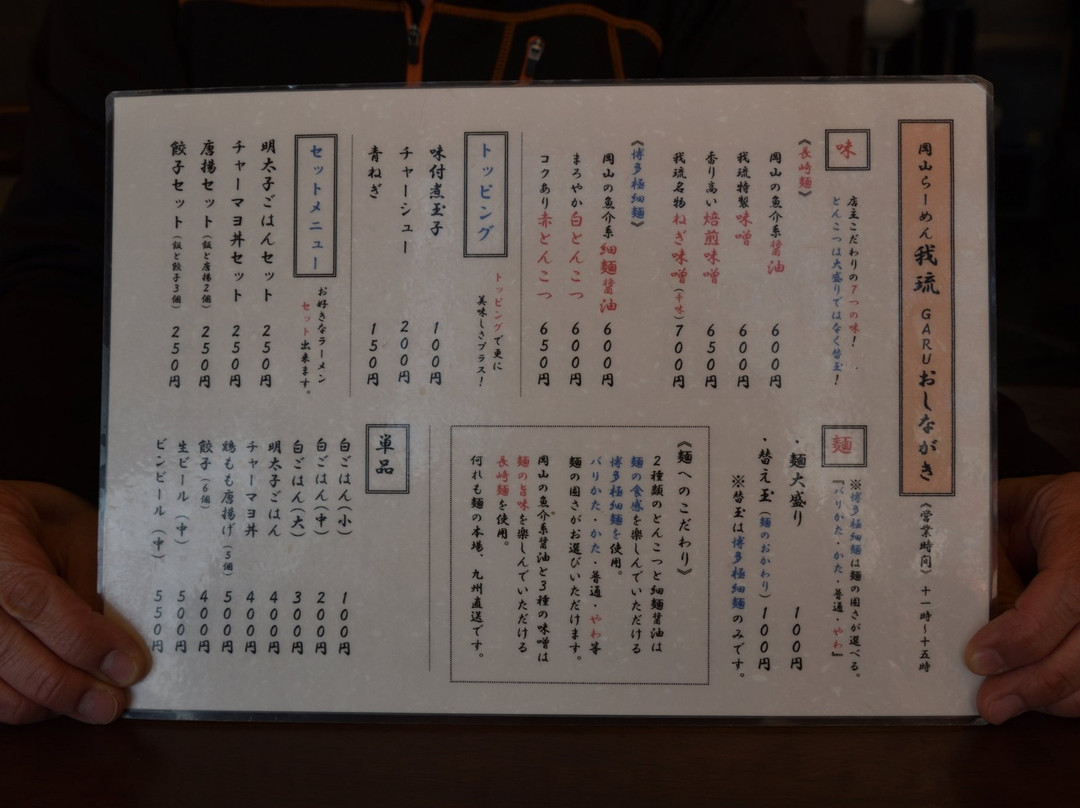 岡山らーめん 我琉 GARUおしながき
《営業時間》十一時~十五時
味
店主こだわりの7つの味!
とんこつは大盛りではなく替玉!
《長崎麺》
岡山の魚介系醤油 600円
我琉特製味噌 600円
香り高い焙煎味噌 650円
我琉名物ねぎ味噌(辛味) 700円
《博多極細麺》
岡山の魚介系細麺醤油 600円
まろやか白とんこつ 600円
コクあり赤とんこつ 650円
トッピング
トッピングで更に
美味しさプラス!
味付煮玉子 100円
チャーシュー 200円
青ねぎ 150円
セットメニュー
お好きなラーメン
セット出来ます。
明太子ごはんセット 250円
チャーマヨ丼セット 250円
唐揚セット(飯と唐揚2個) 250円
餃子セット(飯と餃子3個) 250円
麺
※博多極細麺は麺の固さが選べる。
『バリかた・かた・普通・やわ』
・麺大盛り 100円
・替え玉(麺のおかわり) 100円
※替玉は博多極細麺のみです。
《麺へのこだわり》
2種類のとんこつと細麺醤油は
麺の食感を楽しんでいただける
博多極細麺を使用。
バリかた・かた・普通・やわ等
麺の固さがお選びいただけます。
岡山の魚介系醤油と3種の味噌は
麺の旨味を楽しんでいただける
長崎麺を使用。
何れも麺の本場、九州直送です。
単品
白ごはん(小) 100円
白ごはん(中) 200円
白ごはん(大) 300円
明太子ごはん 400円
チャーマヨ丼 400円
鶏もも唐揚げ(5個) 500円
餃子(6個) 400円
生ビール(中) 500円
ビンビール(中) 550円